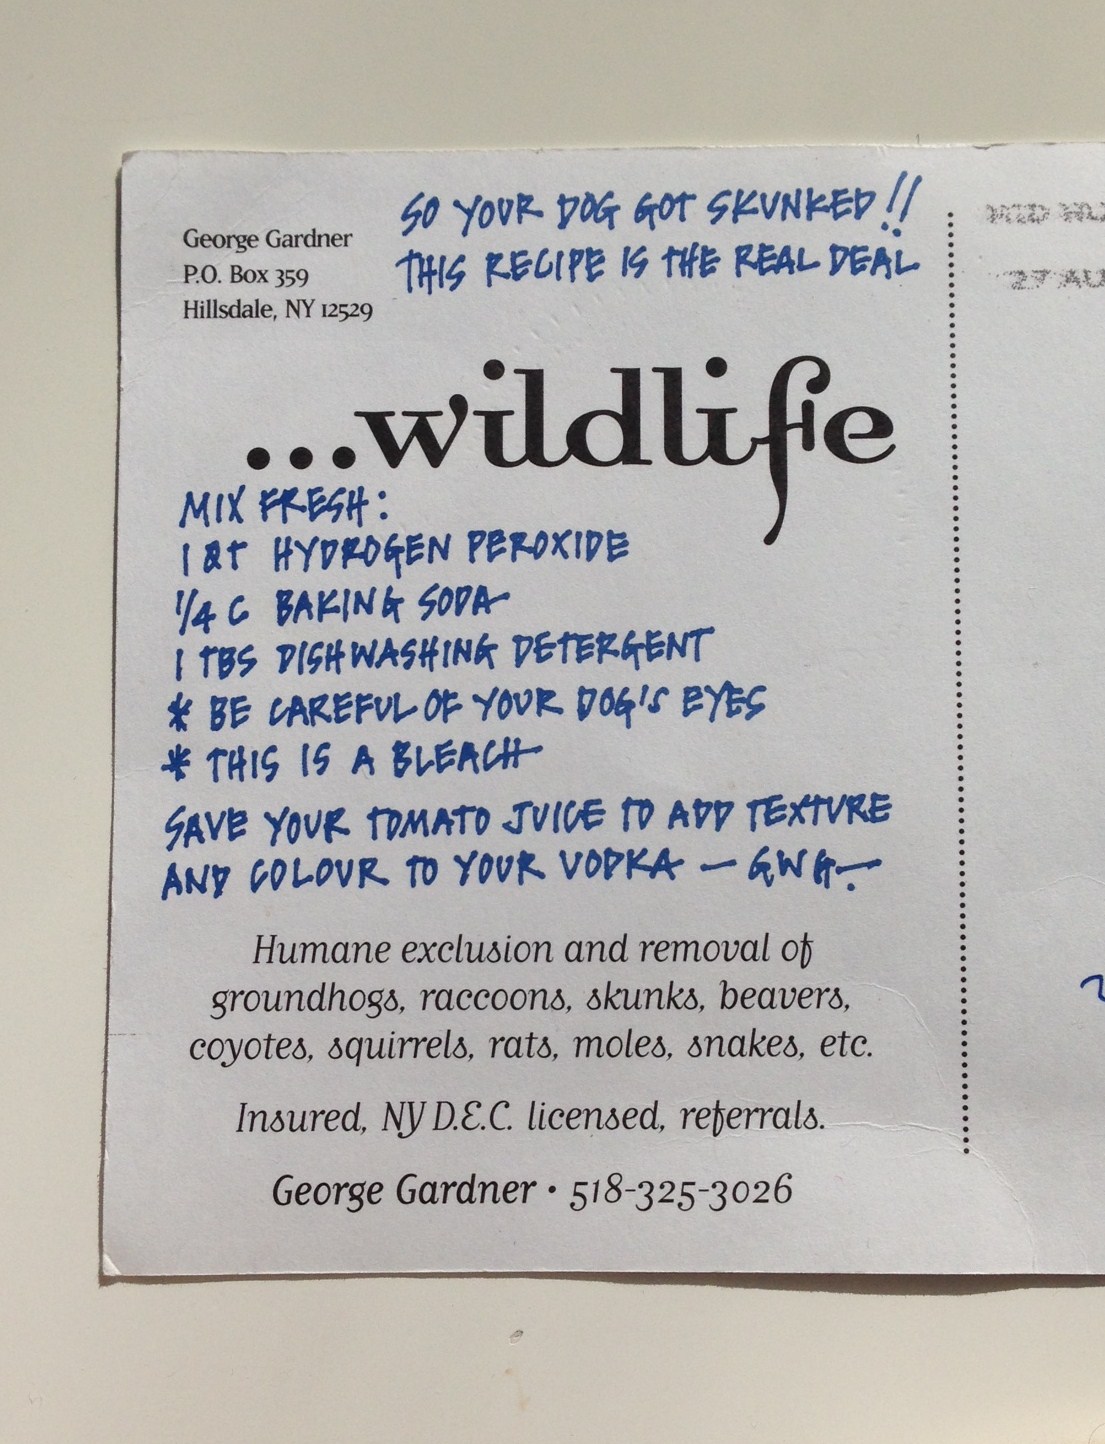 George Gardner
P.O. Box 359
Hillsdale, NY 12529
SO YOUR DOG GOT SKUNKED!!
THIS RECIPE IS THE REAL DEAL
...wildlife
MIX FRESH:
1 QT HYDROGEN PEROXIDE
1/4 C BAKING SODA
1 TBS DISHWASHING DETERGENT
* BE CAREFUL OF YOUR DOG'S EYES
* THIS IS A BLEACH
SAVE YOUR TOMATO JUICE TO ADD TEXTURE
AND COLOUR TO YOUR VODKA — GWG —
Humane exclusion and removal of
groundhogs, raccoons, skunks, beavers,
coyotes, squirrels, rats, moles, snakes, etc.
Insured, NY D.E.C. licensed, referrals.
George Gardner • 518-325-3026
MID HU
27 AU